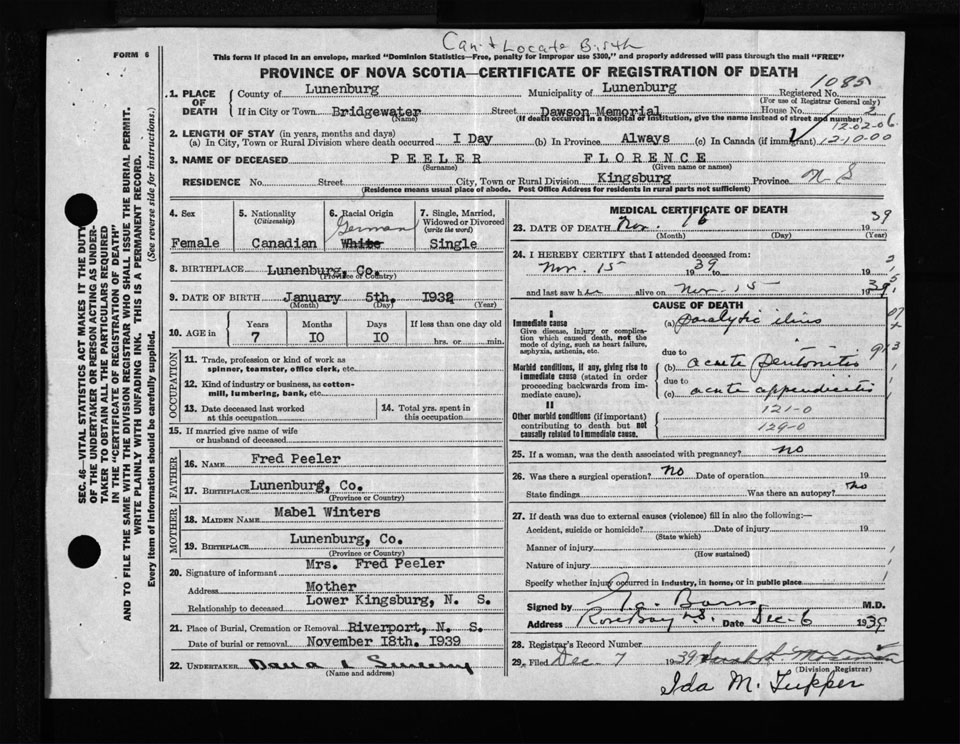 Can't Locate Birth
FORM 6
This form if placed in an envelope, marked "Dominion Statistics—Free, penalty for improper use $300," and properly addressed will pass through the mail "FREE"
PROVINCE OF NOVA SCOTIA—CERTIFICATE OF REGISTRATION OF DEATH
1085
1. PLACE OF DEATH County of Lunenburg Municipality of Lunenburg Registered No.
(For use of Registrar General only)
If in City or Town Bridgewater Street Dawson Memorial House No. 2
(Name) (If death occurred in a hospital or institution, give the name instead of street and number)
12-02-06
2. LENGTH OF STAY (in years, months and days)
(a) In City, Town or Rural Division where death occurred 1 Day (b) In Province Always (c) In Canada (if immigrant) 12-10-00
3. NAME OF DECEASED PEELER FLORENCE
(Surname) (Given name or names)
RESIDENCE No. Street City, Town or Rural Division Kingsburg Province N S
(Residence means usual place of abode. Post Office Address for residents in rural parts not sufficient)
4. Sex Female
5. Nationality (Citizenship) Canadian
6. Racial Origin German White
7. Single, Married, Widowed or Divorced (write the word) Single
8. BIRTHPLACE Lunenburg, Co.
(Province or Country)
9. DATE OF BIRTH January 5th, 1932
(Month) (Day) (Year)
10. AGE in Years 7 Months 10 Days 10 If less than one day old
hrs. or min.
OCCUPATION
11. Trade, profession or kind of work as spinner, teamster, office clerk, etc.
12. Kind of industry or business, as cotton-mill, lumbering, bank, etc.
13. Date deceased last worked at this occupation
14. Total yrs. spent in this occupation
15. If married give name of wife or husband of deceased
FATHER
16. NAME Fred Peeler
17. BIRTHPLACE Lunenburg, Co.
(Province or Country)
MOTHER
18. MAIDEN NAME Mabel Winters
19. BIRTHPLACE Lunenburg, Co.
(Province or Country)
20. Signature of informant Mrs. Fred Peeler
Address Mother
Relationship to deceased Lower Kingsburg, N. S.
21. Place of Burial, Cremation or Removal Riverport, N. S.
Date of burial or removal November 18th. 1939
22. UNDERTAKER
(Name and address)
MEDICAL CERTIFICATE OF DEATH
23. DATE OF DEATH Nov. 16 1939
(Month) (Day) (Year)
24. I HEREBY CERTIFY that I attended deceased from:
Nov. 15 1939 19
and last saw her alive on Nov. 15 1939
CAUSE OF DEATH
I
Immediate cause
Give disease, injury or complication which caused death, not the mode of dying, such as heart failure, asphyxia, asthenia, etc.
(a) paralytic ilius
due to
Morbid conditions, if any, giving rise to immediate cause (stated in order proceeding backwards from immediate cause).
(b) acute peritonitis
due to
(c) acute appendicitis
II
Other morbid conditions (if important) contributing to death but not causally related to immediate cause.
121-0
129-0
25. If a woman, was the death associated with pregnancy? no
26. Was there a surgical operation? no Date of operation 19
State findings Was there an autopsy? no
27. If death was due to external causes (violence) fill in also the following:—
Accident, suicide or homicide? Date of injury 19
(State which)
Manner of injury
(How sustained)
Nature of injury
Specify whether injury occurred in industry, in home, or in public place
Signed by M.D.
Address Rose Bay N.S. Date Dec-6 1939
28. Registrar's Record Number
29. Filed Dec. 7 1939
(Division Registrar)
Ida M. Tupper
SEC. 46—VITAL STATISTICS ACT MAKES IT THE DUTY
OF THE UNDERTAKER OR PERSON ACTING AS UNDER-
TAKER TO OBTAIN ALL THE PARTICULARS REQUIRED
IN THE "CERTIFICATE OF REGISTRATION OF DEATH"
AND TO FILE THE SAME WITH THE DIVISION REGISTRAR WHO SHALL ISSUE THE BURIAL PERMIT.
WRITE PLAINLY WITH UNFADING INK. THIS IS A PERMANENT RECORD.
Every item of information should be carefully supplied. (See reverse side for instructions.)